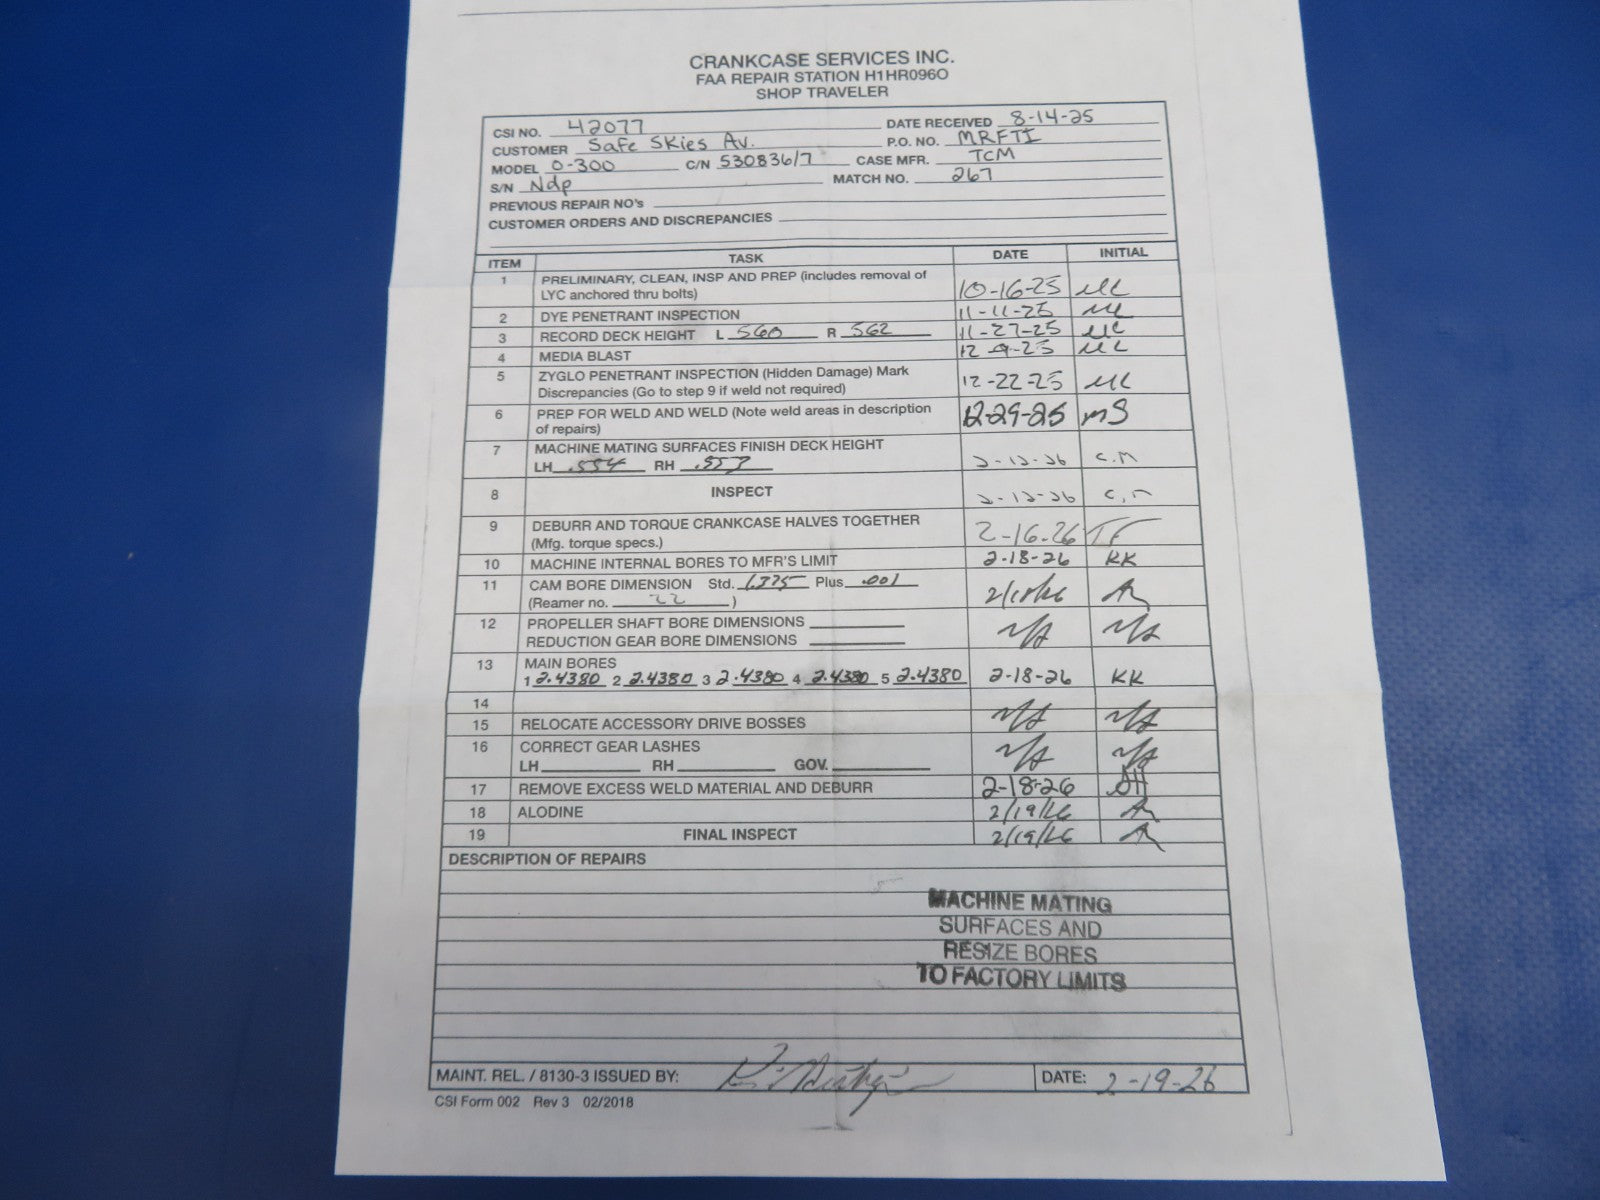 CRANKCASE SERVICES INC.
FAA REPAIR STATION H1HR096O
SHOP TRAVELER
CSI NO. 42077 DATE RECEIVED 8-14-25
CUSTOMER Safe Skies Av. P.O. NO. MRFTI
MODEL O-300 C/N 530836/7 CASE MFR. TCM
S/N Ndp MATCH NO. 267
PREVIOUS REPAIR NO's
CUSTOMER ORDERS AND DISCREPANCIES
ITEM TASK DATE INITIAL
1 PRELIMINARY, CLEAN, INSP AND PREP (includes removal of
LYC anchored thru bolts) 10-16-25
2 DYE PENETRANT INSPECTION 11-11-25
3 RECORD DECK HEIGHT L 560 R 562 11-27-25
4 MEDIA BLAST 12-9-25
5 ZYGLO PENETRANT INSPECTION (Hidden Damage) Mark
Discrepancies (Go to step 9 if weld not required) 12-22-25
6 PREP FOR WELD AND WELD (Note weld areas in description
of repairs) 12-29-25 MS
7 MACHINE MATING SURFACES FINISH DECK HEIGHT
LH .554 RH .553 2-12-26 C.M
8 INSPECT 2-12-26 C.M
9 DEBURR AND TORQUE CRANKCASE HALVES TOGETHER
(Mfg. torque specs.) 2-16-26 TF
10 MACHINE INTERNAL BORES TO MFR'S LIMIT 2-18-26 KK
11 CAM BORE DIMENSION Std. 1.375 Plus .001
(Reamer no. 22 ) 2/18/26
12 PROPELLER SHAFT BORE DIMENSIONS
REDUCTION GEAR BORE DIMENSIONS N/A N/A
13 MAIN BORES
1 2.4380 2 2.4380 3 2.4380 4 2.4380 5 2.4380 2-18-26 KK
14
15 RELOCATE ACCESSORY DRIVE BOSSES N/A N/A
16 CORRECT GEAR LASHES
LH RH GOV. N/A N/A
17 REMOVE EXCESS WELD MATERIAL AND DEBURR 2-18-26
18 ALODINE 2/19/26
19 FINAL INSPECT 2/19/26
DESCRIPTION OF REPAIRS
MACHINE MATING
SURFACES AND
RESIZE BORES
TO FACTORY LIMITS
MAINT. REL. / 8130-3 ISSUED BY: DATE: 2-19-26
CSI Form 002 Rev 3 02/2018